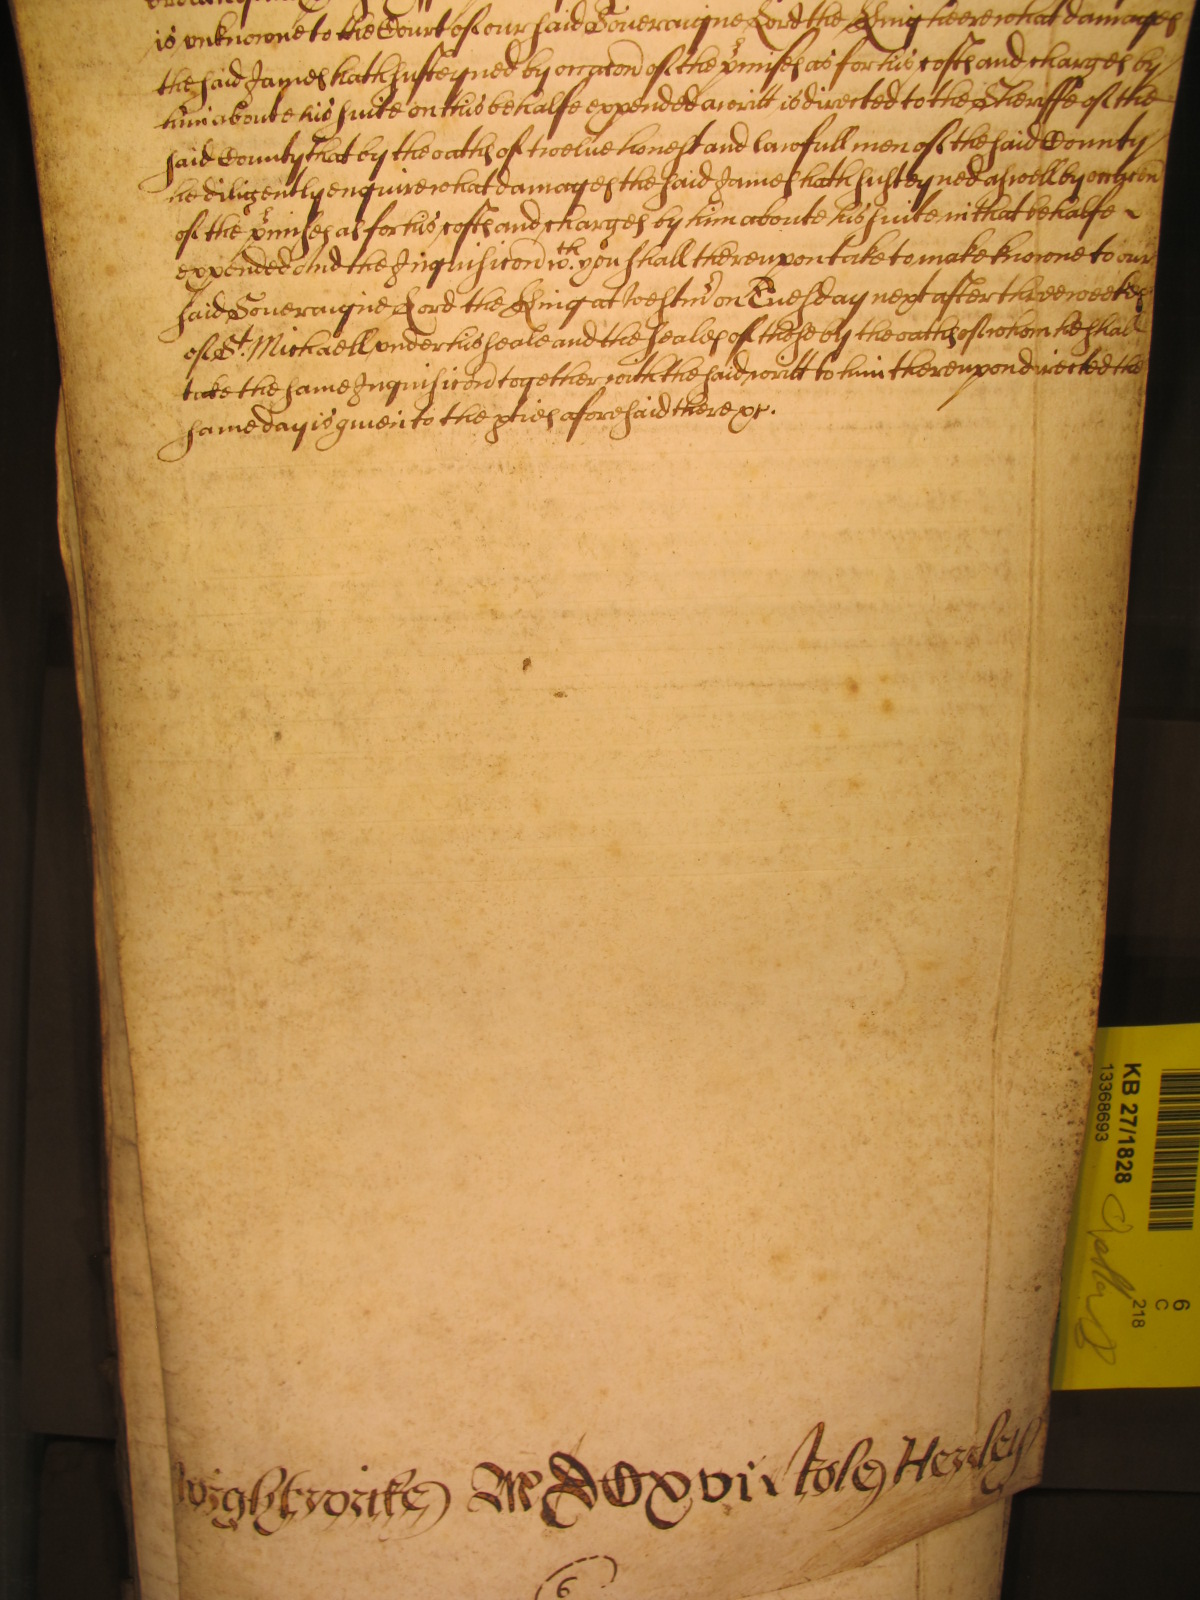 is unknowne to the Court of our said Soueraigne Lord the King heere what damages
the said James hath susteyned by occacon of the p'misses as for his costs and charges by
him aboute his suite in this behalfe expended a writt is directed to the Sheriffe of the
said County that by the oath of twelve honest and lawfull men of the said County
he diligently enquire what damages the said James hath susteyned aswell by occacon
of the p'misses as for his costs and charges by him aboute his suite in that behalfe
expended And the Inquisicon wth. you shall thereupon take to make knowne to our
said Soueraigne Lord the King at Westmr on Tuesday next after three weekes
of St. Michaell under his seale and the seales of those by the oath of whom he shall
take the same Inquisicon together with the said writt to him thereupon directed the
same day is given to the pties aforesaid there &c.
Wightwicke MDCxvii Rolls Henley
6
KB 27/1828
13368693
218
6
C